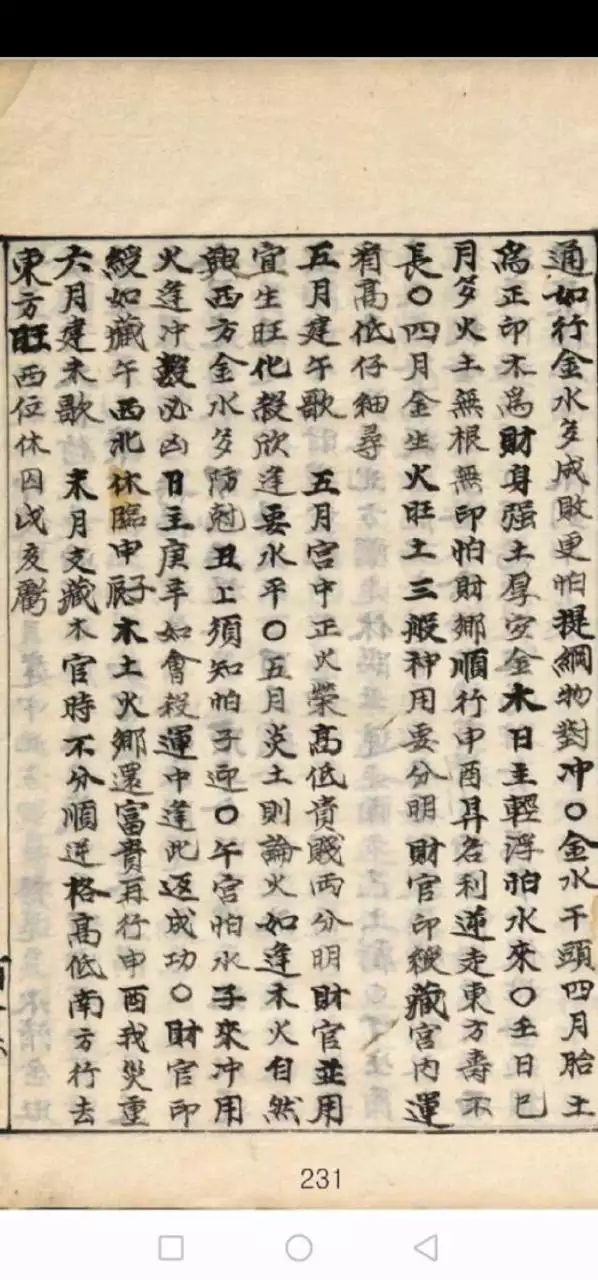 通如行金水多成敗更怕提綱物對冲○金水干頭四月胎土
為正印木為財身强土厚安金木日主輕浮怕水來○壬日巳
月多火土無根無印怕財鄉順行申酉昇名利逆走東方壽不
長○四月金生火旺土三般神用要分明財官印綬藏宫内運
有高低仔細尋
五月建午歌　五月宫中正火榮高低貴賤両分明財官並用
宜生旺化殺欣逢要水平○五月炎土則論火如逢木火自然
興西方金水多防尅丑上須知怕子迎○午宫怕水子來冲用
火逢冲数必凶日主庚辛如會殺運中逢此返成功○財官印
綬如藏午西北休臨申辰子木土火鄉還富貴再行申酉我災重
六月建未歌　未月支藏木官時不分順逆格高低南方行去
東方旺西位休囚戌亥虧
231